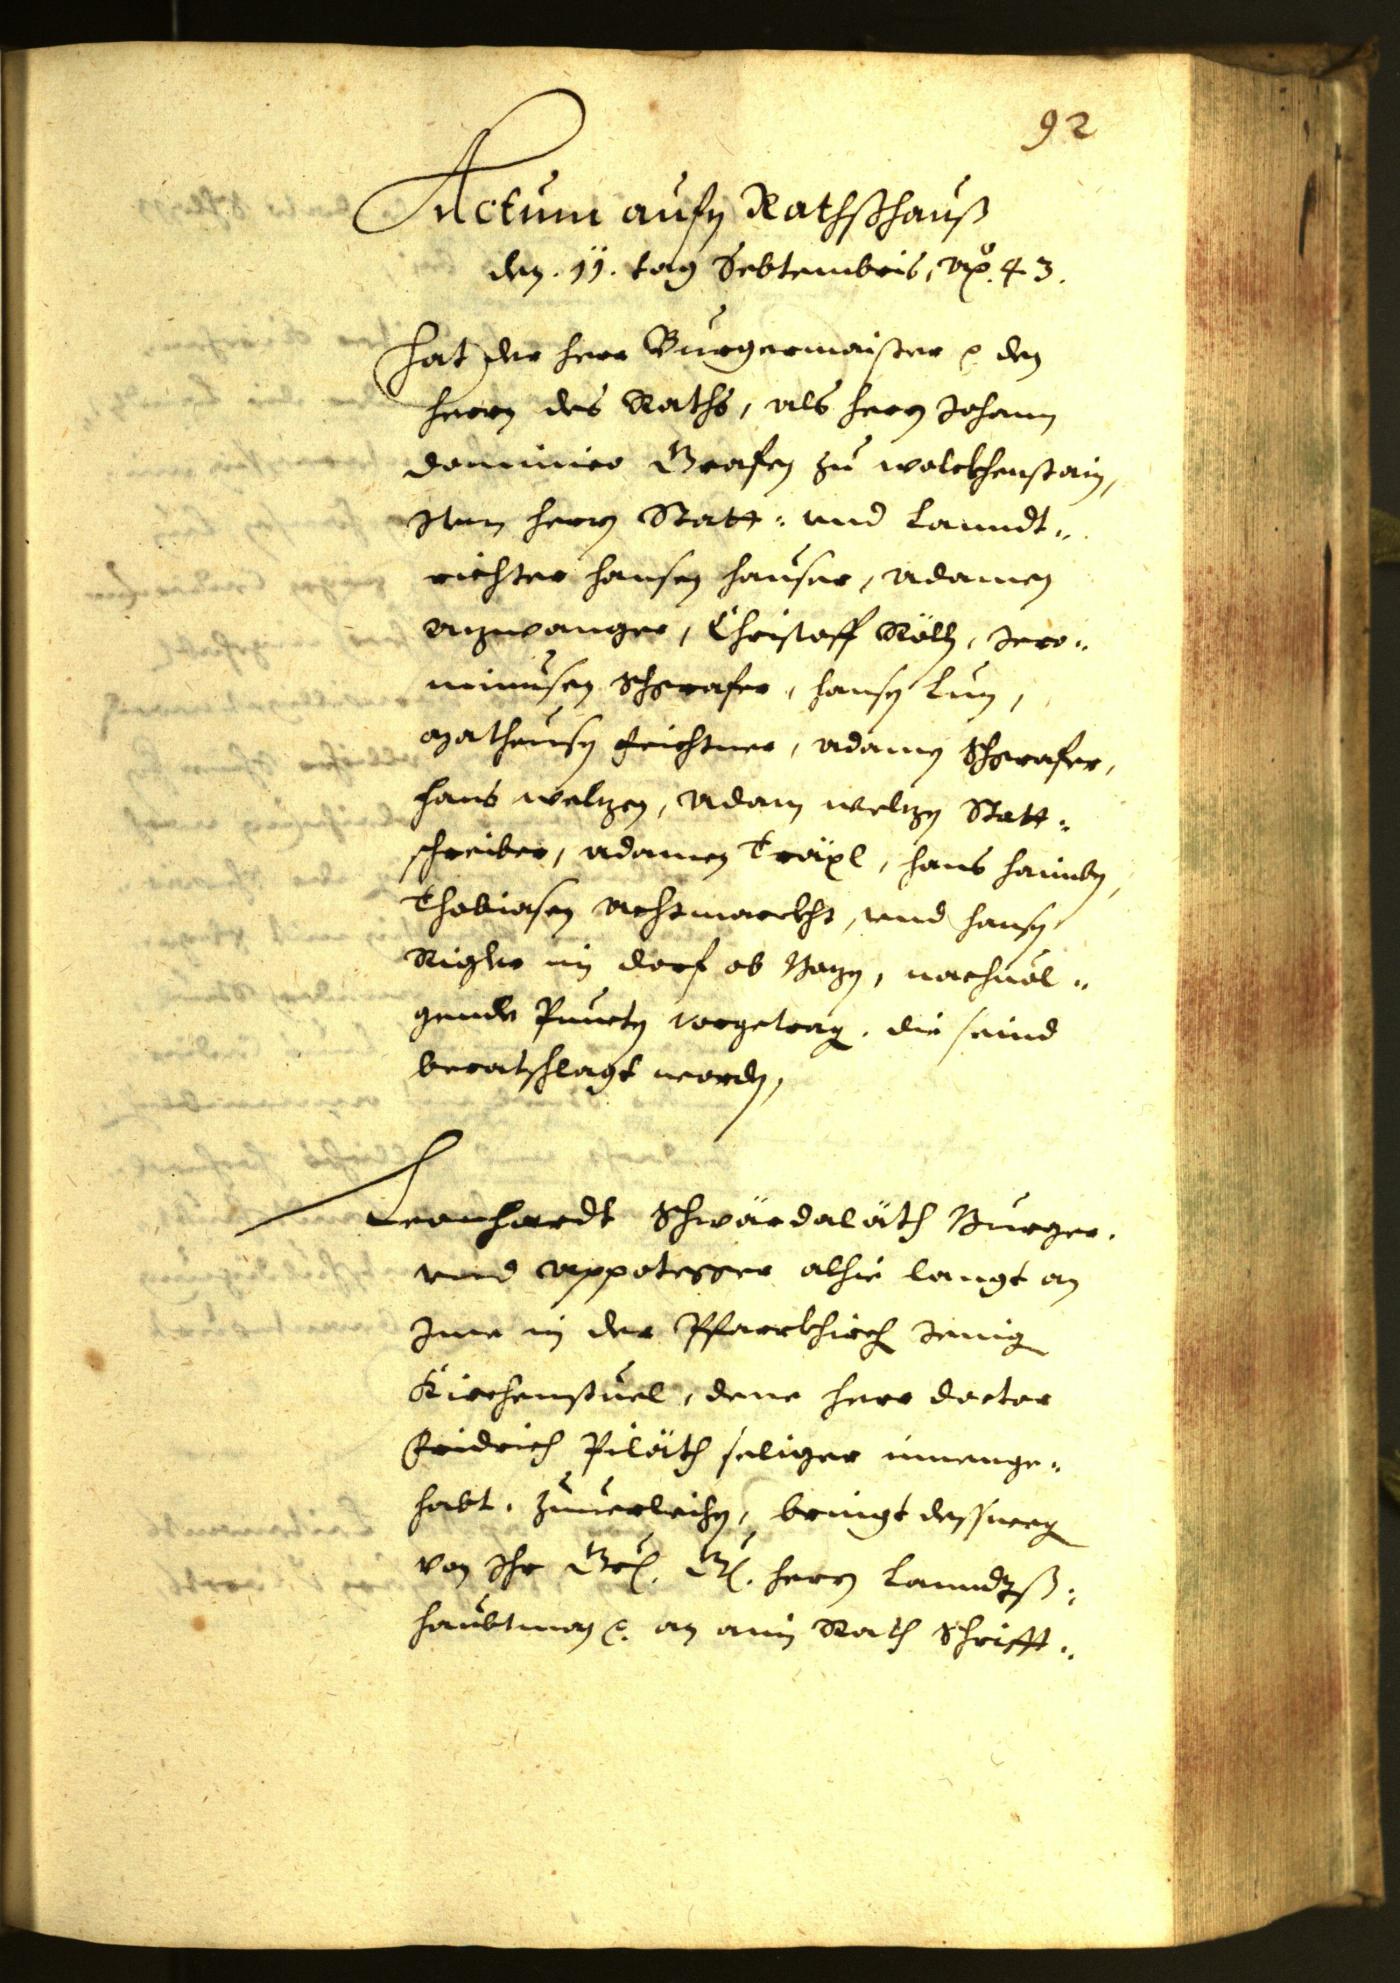 92
Actum aufn Rathßhauß
den .11. tag Sebtembris, Aõ. 43.
Hat der herr Burgermaister etc. den
herrn des Raths, als herrn Johann
Dominico Grafen zu Wolckhenstain,
Item herrn Statt- und Lanndt-
richter Hansen Hauser, Adamen
Anzwanger, Christoff Röll, Jero-
nimusen Schgrafer, Hansn Lun,
Matheusn Feichtner, Adamen Schgrafer,
Hans Weltzen, Adam Weltzn Statt-
schreiber, Adamen Träxl, Hans Haimbn,
Thobiasen Achtmarckht, und Hansn
Rigler im Dorf ob Bozn, nachvol-
gende Puncta vorgetragn, die seind
beratschlagt wordn,
Leonhardt Schwärdaläth Burger
und Appotegger alhie langt an
Ime in der Pfarrkhirch Jenig
Kirchenstuel, dene herr Doctor
Fridrich Piläth seliger innenge-
habt, zuverleihn, bringt dessweg
von Ihr Grl. Gl. herrn Lanndtß-
haubtman etc. an ain Rath Schrifft-